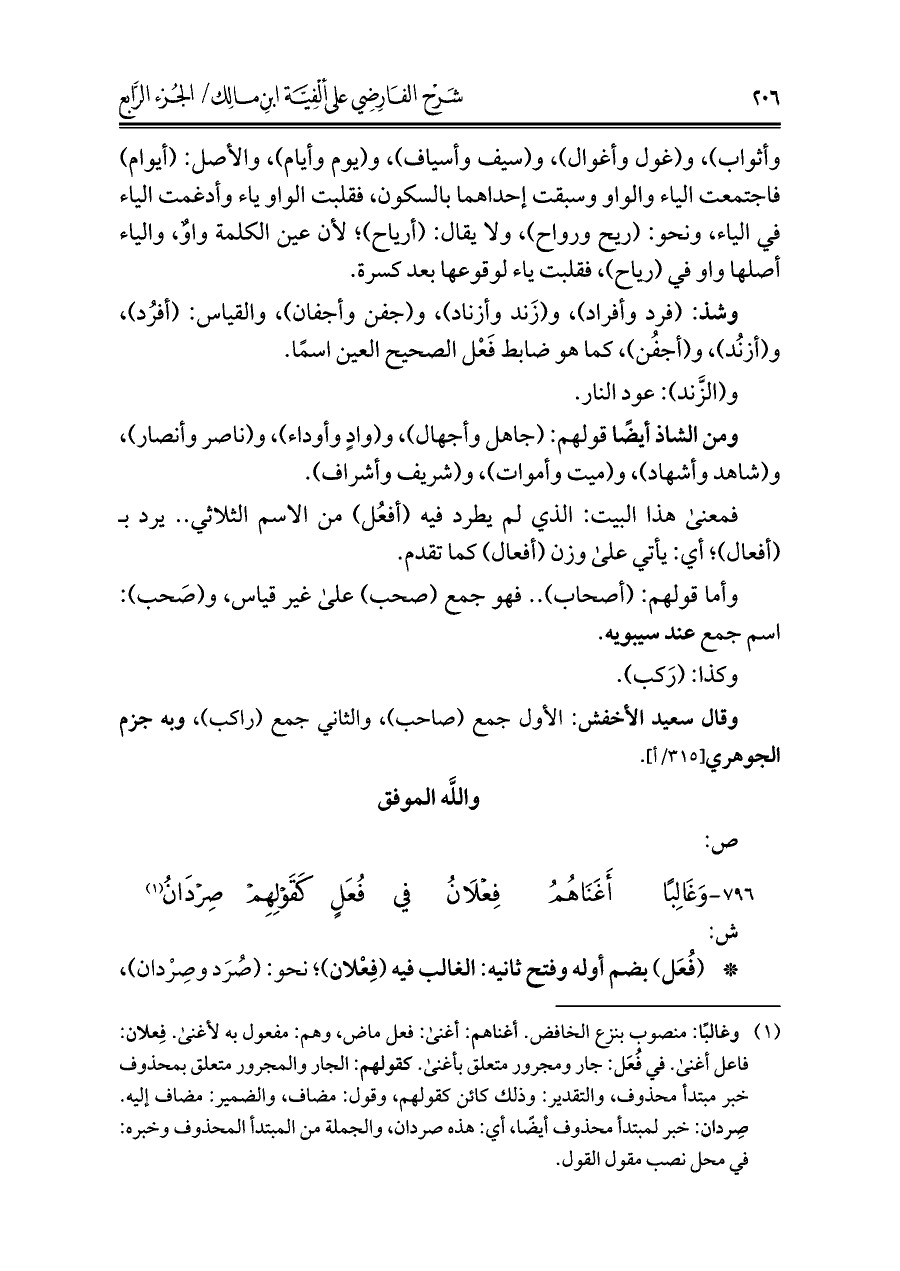 ٢٠٦ شرح الفارضي على ألفية ابن مالك/ الجزء الرابع
وأثواب)، و(غول وأغوال)، و(سيف وأسياف)، و(يوم وأيام)، والأصل: (أيوام)
فاجتمعت الياء والواو وسبقت إحداهما بالسكون، فقلبت الواو ياء وأدغمت الياء
في الياء، ونحو: (ريح ورواح)، ولا يقال: (أرياح)؛ لأن عين الكلمة واوٌ، والياء
أصلها واو في (رياح)، فقلبت ياء لوقوعها بعد كسرة.
وشذ: (فرد وأفراد)، و(زَند وأزناد)، و(جفن وأجفان)، والقياس: (أفرُد)،
و(أزنُد)، و(أجفُن)، كما هو ضابط فَعْل الصحيح العين اسمًا.
و(الزَّند): عود النار.
ومن الشاذ أيضًا قولهم: (جاهل وأجهال)، و(وادٍ وأوداء)، و(ناصر وأنصار)،
و(شاهد وأشهاد)، و(ميت وأموات)، و(شريف وأشراف).
فمعنىٰ هذا البيت: الذي لم يطرد فيه (أفعُل) من الاسم الثلاثي.. يرد بـ
(أفعال)؛ أي: يأتي علىٰ وزن (أفعال) كما تقدم.
وأما قولهم: (أصحاب).. فهو جمع (صحب) علىٰ غير قياس، و(صَحب):
اسم جمع عند سيبويه.
وكذا: (رَكب).
وقال سعيد الأخفش: الأول جمع (صاحب)، والثاني جمع (راكب)، وبه جزم
الجوهري[٣١٥/ أ].
واللَّه الموفق
ص:
٧٩٦-وَغَالِبًا أَغْنَاهُمُ فِعْلَانُ في فُعَلٍ كَقَوْلِهِمْ صِرْدَانُ(١)
ش:
* (فُعَل) بضم أوله وفتح ثانيه: الغالب فيه (فِعْلان)؛ نحو: (صُرَد وصِرْدان)،
(١) وغالبًا: منصوب بنزع الخافض. أغناهم: أغنىٰ: فعل ماض، وهم: مفعول به لأغنىٰ. فِعلان:
فاعل أغنىٰ. في فُعَل: جار ومجرور متعلق بأغنىٰ. كقولهم: الجار والمجرور متعلق بمحذوف
خبر مبتدأ محذوف، والتقدير: وذلك كائن كقولهم، وقول: مضاف، والضمير: مضاف إليه.
صِردان: خبر لمبتدأ محذوف أيضًا، أي: هذه صردان، والجملة من المبتدأ المحذوف وخبره:
في محل نصب مقول القول.